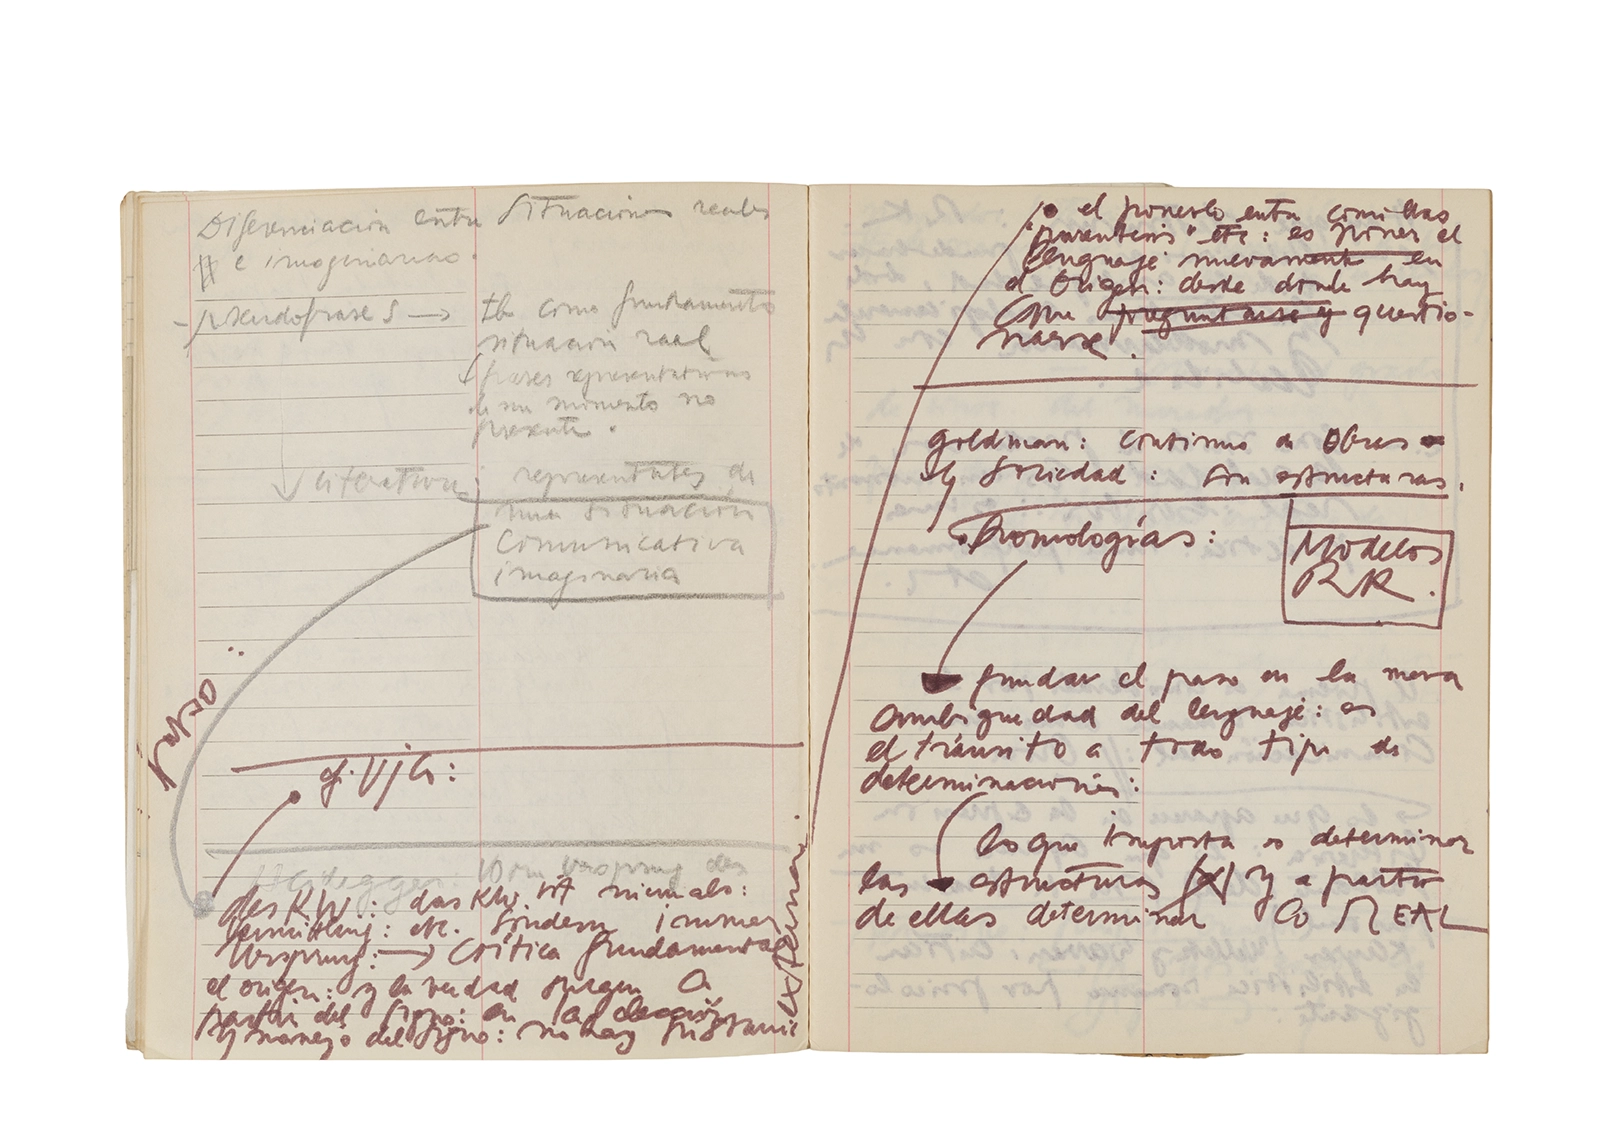 Diferenciación entre situaciones reales
e imaginarias.
- pseudofrases → como fundamento
situación real
frases representativas
de un momento no
presente.
↓ literatura: representantes de
una situación
comunicativa
imaginaria
cf. Vjls:
das KW.: das KW. ist niemals:
Vermittlung: etc. sondern immer
Ursprung: → Crítica fundamental
el origen: y la verdad surgen a
partir del signo: en la elección
y manejo del signo: no hay
externa.
el ponerlo entre comillas
"parentesis" etc: es poner el
lenguaje nuevamente en
el origen: desde donde hay
que preguntarse y questio-
narse.
Goldman: continuo en Obras
y Sociedad: son estructuras.
homologías:
Modelos
RR.
fundar el paso en la mera
ambiguedad del lenguaje: es
el tránsito a todo tipo de
determinaciones:
lo que importa es determinar
las estructuras (x) y a partir
de ellas determinar lo REAL